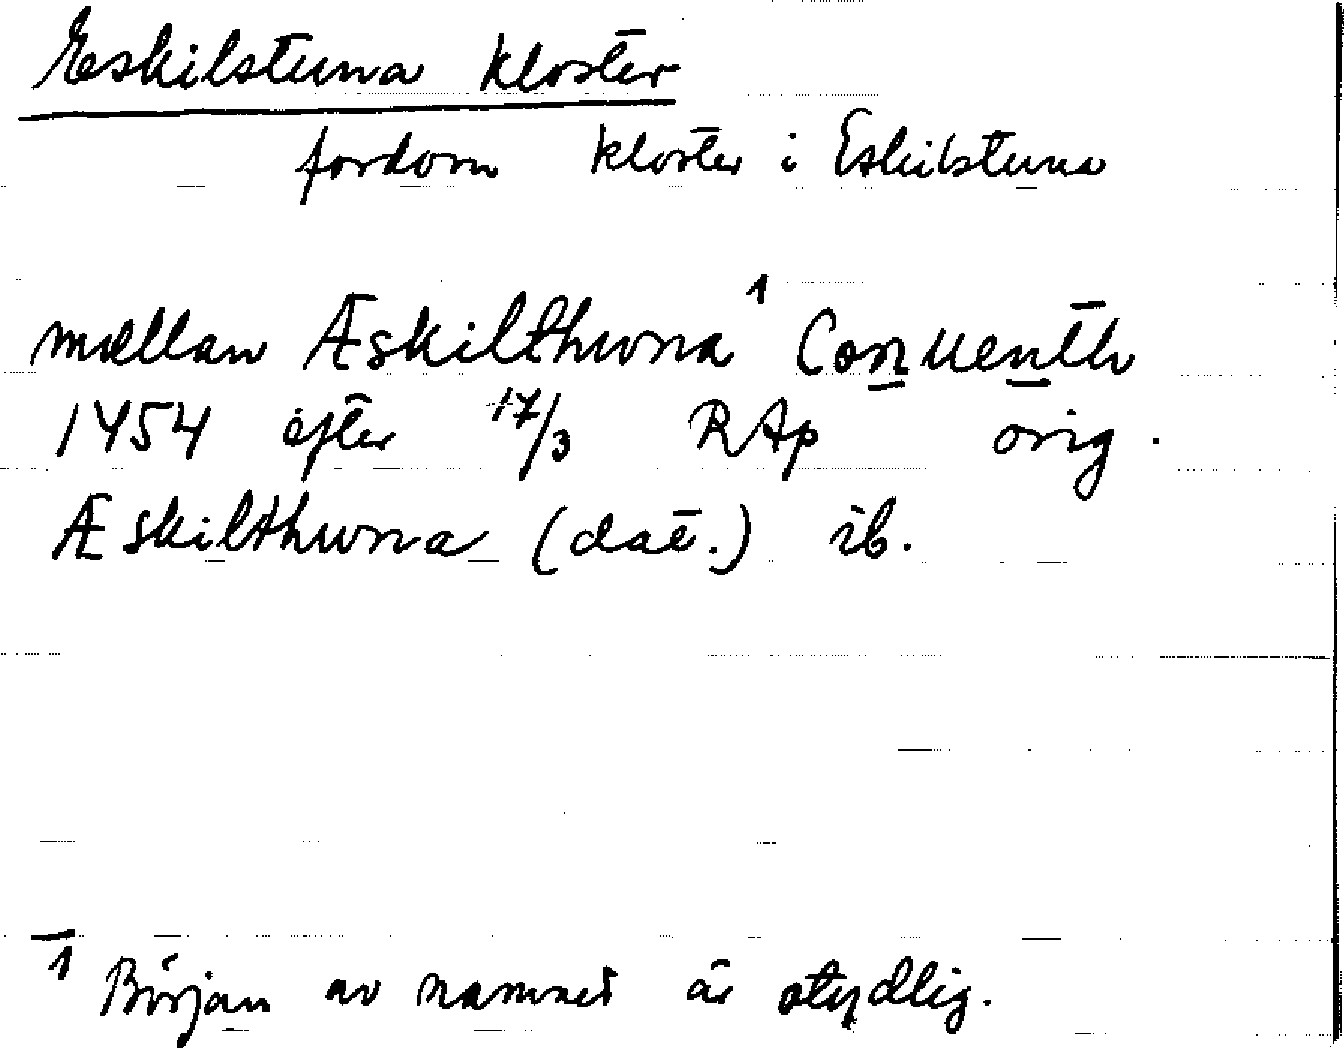 Eskilstuna kloster
fordom kloster i Eskilstuna
mællan Æskilthuna¹ Conuenth
1454 efter 17/3 RAp orig.
Æskilthuna (dat.) ib.
1 Början av namnet är otydlig.